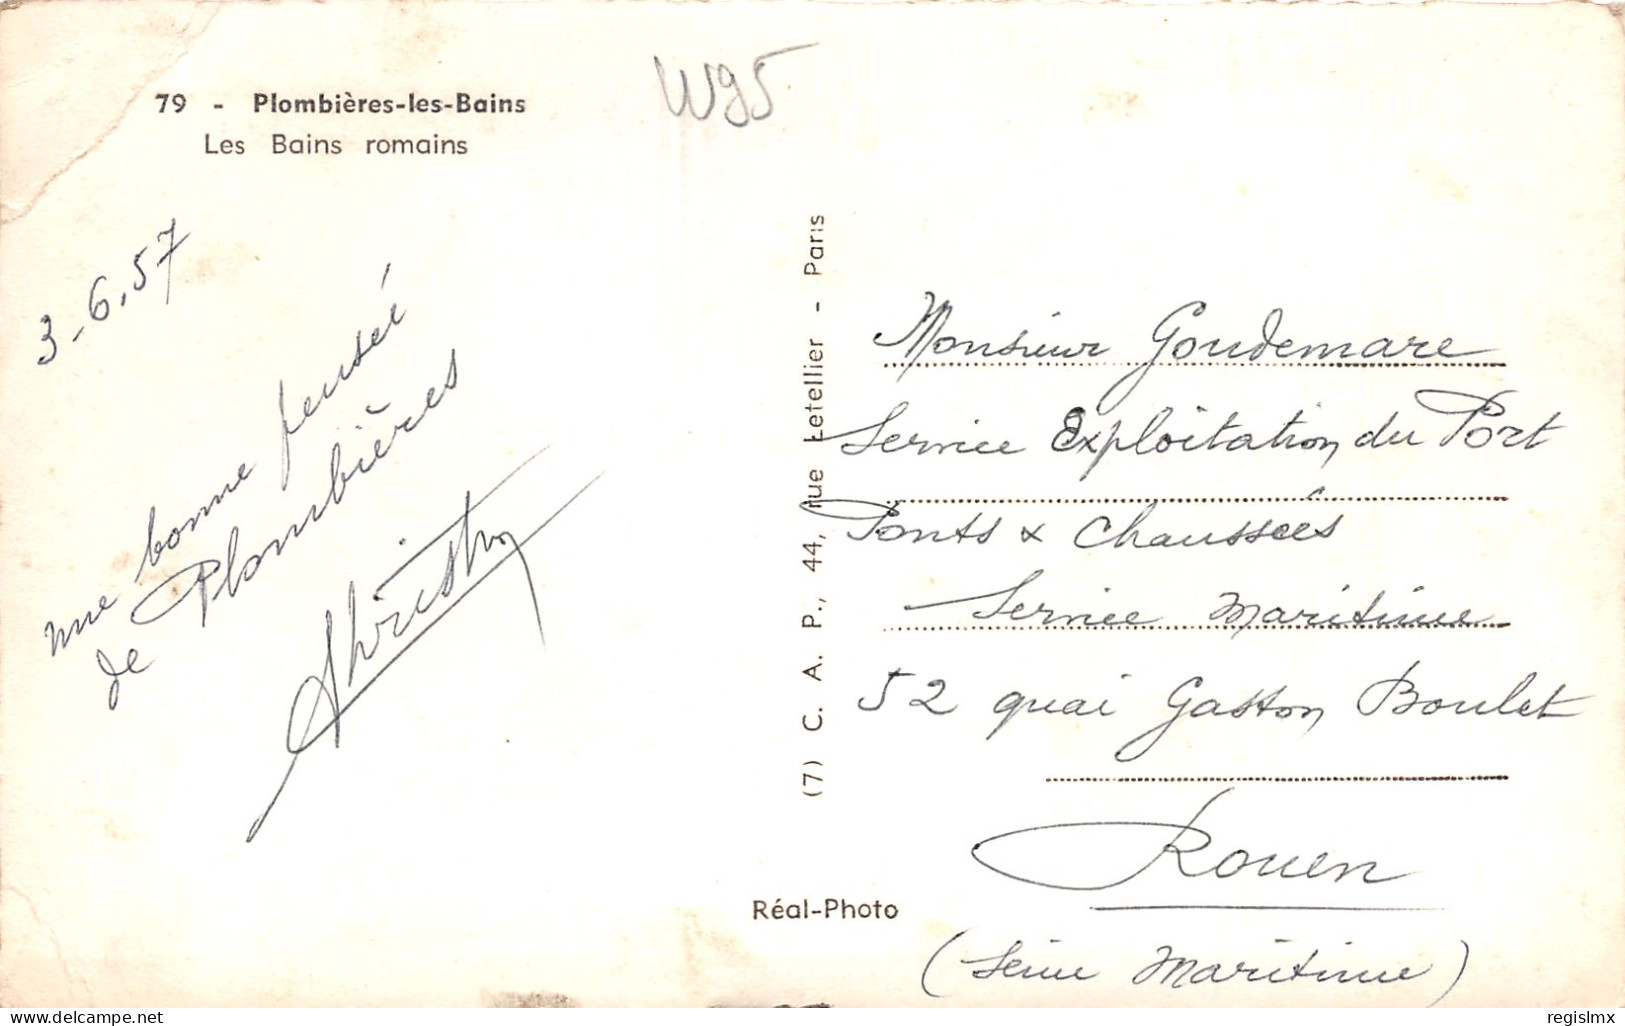 79 - Plombières-les-Bains
Les Bains romains
W95
3-6.57
une bonne pensée
de Plombières
(7) C. A. P., 44, rue Letellier - Paris
Réal-Photo
Monsieur Goudemare
Service Exploitation du Port
Ponts & Chaussées
Service Maritime
52 quai Gaston Boulet
Rouen
(Seine Maritime)
delcampe.net
regislmx